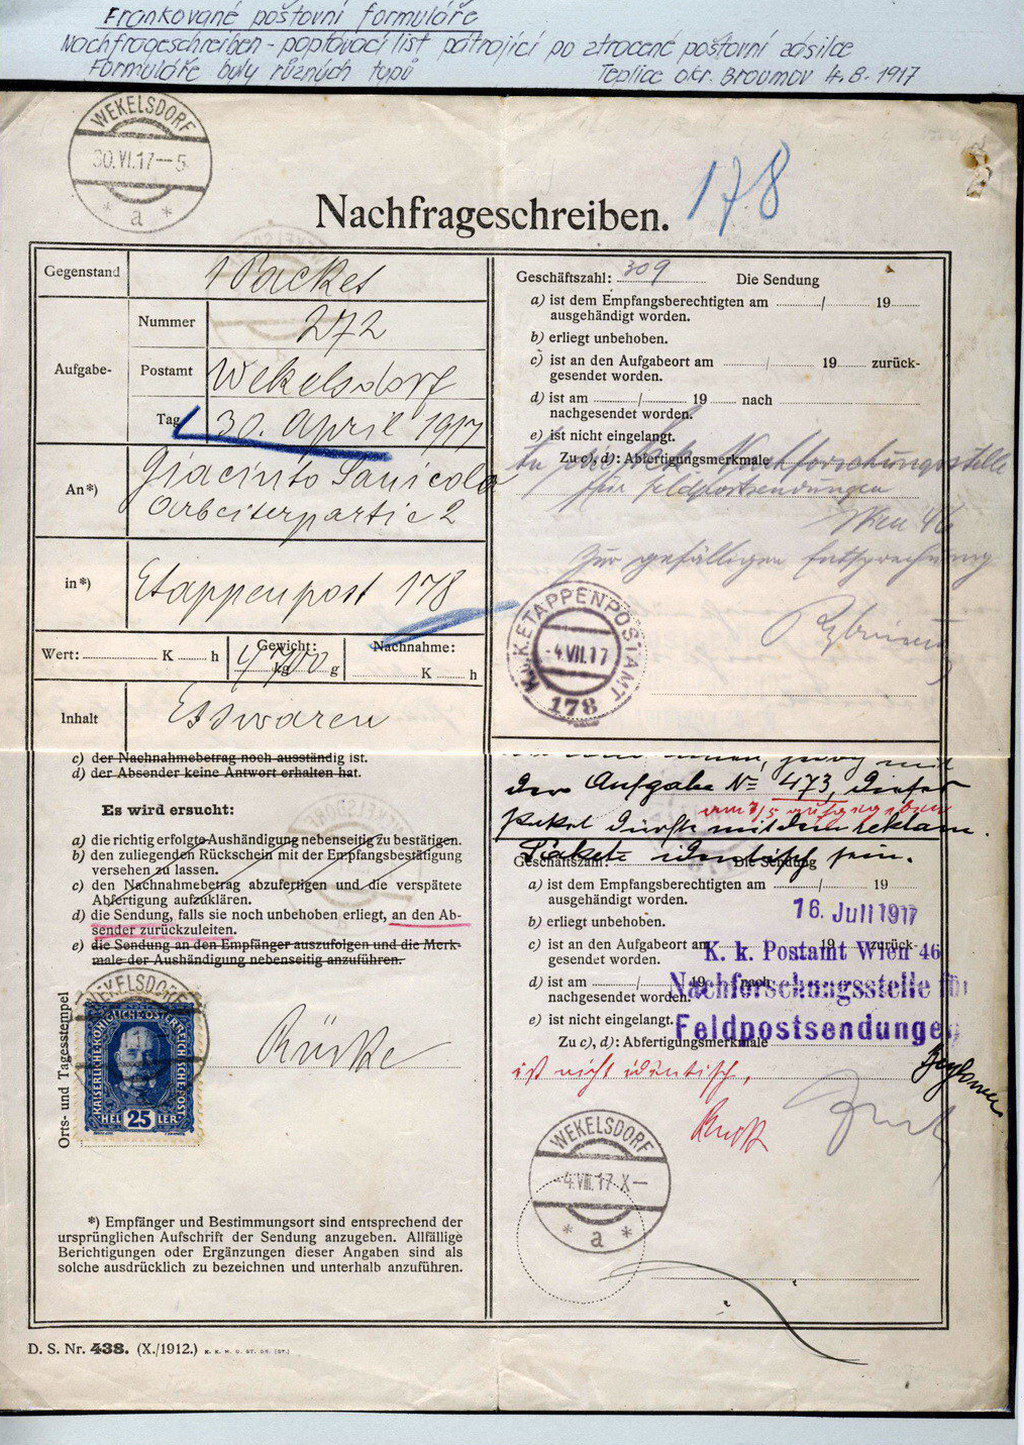 Frankované poštovní formuláře
Nachfrageschreiben - poptávací list pátrající po ztracené poštovní zásilce
Formuláře byly různých typů
Teplice okr. Broumov 4.8.1917
WEKELSDORF
30.VI.17—5
* a *
Nachfrageschreiben.
178
Gegenstand
1 Packet
Aufgabe-
Nummer
272
Postamt
Wekelsdorf
Tag
30. April 1917
An*)
Giacinto Sanicola
Arbeiterpartie 2
in*)
Etappenpost 178
Wert: K h
Gewicht: kg g
Nachnahme: K h
Inhalt
Esswaren
c) der Nachnahmebetrag noch ausständig ist.
d) der Absender keine Antwort erhalten hat.
Es wird ersucht:
a) die richtig erfolgte Aushändigung nebenseitig zu bestätigen.
b) den zuliegenden Rückschein mit der Empfangsbestätigung
versehen zu lassen.
c) den Nachnahmebetrag abzufertigen und die verspätete
Abfertigung aufzuklären.
d) die Sendung, falls sie noch unbehoben erliegt, an den Ab-
sender zurückzuleiten.
e) die Sendung an den Empfänger auszufolgen und die Merk-
male der Aushändigung nebenseitig anzuführen.
Orts- und Tagesstempel
WEKELSDORF
KAISERLICHE KÖNIGLICHE ÖSTERREICHISCHE POST
HEL 25 LER
*) Empfänger und Bestimmungsort sind entsprechend der
ursprünglichen Aufschrift der Sendung anzugeben. Allfällige
Berichtigungen oder Ergänzungen dieser Angaben sind als
solche ausdrücklich zu bezeichnen und unterhalb anzuführen.
D. S. Nr. 438. (X./1912.)
Geschäftszahl: 309 Die Sendung
a) ist dem Empfangsberechtigten am / 19
ausgehändigt worden.
b) erliegt unbehoben.
c) ist an den Aufgabeort am / 19 zurück-
gesendet worden.
d) ist am / 19 nach
nachgesendet worden.
e) ist nicht eingelangt.
Zu c), d): Abfertigungsmerkmale
Nachforschungsstelle
für Feldpostsendungen
Wien 46
zur gefälligen Entsprechung
K.u.K. ETAPPENPOSTAMT
-4.VII.17
178
der Aufgabe No 473, dieses
Paket dürfte mit dem reklam.
Pakete identisch sein.
Geschäftszahl: Die Sendung
a) ist dem Empfangsberechtigten am / 19
ausgehändigt worden.
16. Juli 1917
b) erliegt unbehoben.
c) ist an den Aufgabeort am 19 zurück-
gesendet worden.
K. k. Postamt Wien 46
d) ist am / 19 nach
nachgesendet worden.
Nachforschungsstelle für
e) ist nicht eingelangt.
Feldpostsendungen
Zu c), d): Abfertigungsmerkmale
ist nicht identisch,
WEKELSDORF
-4.VIII.17-X—
* a *